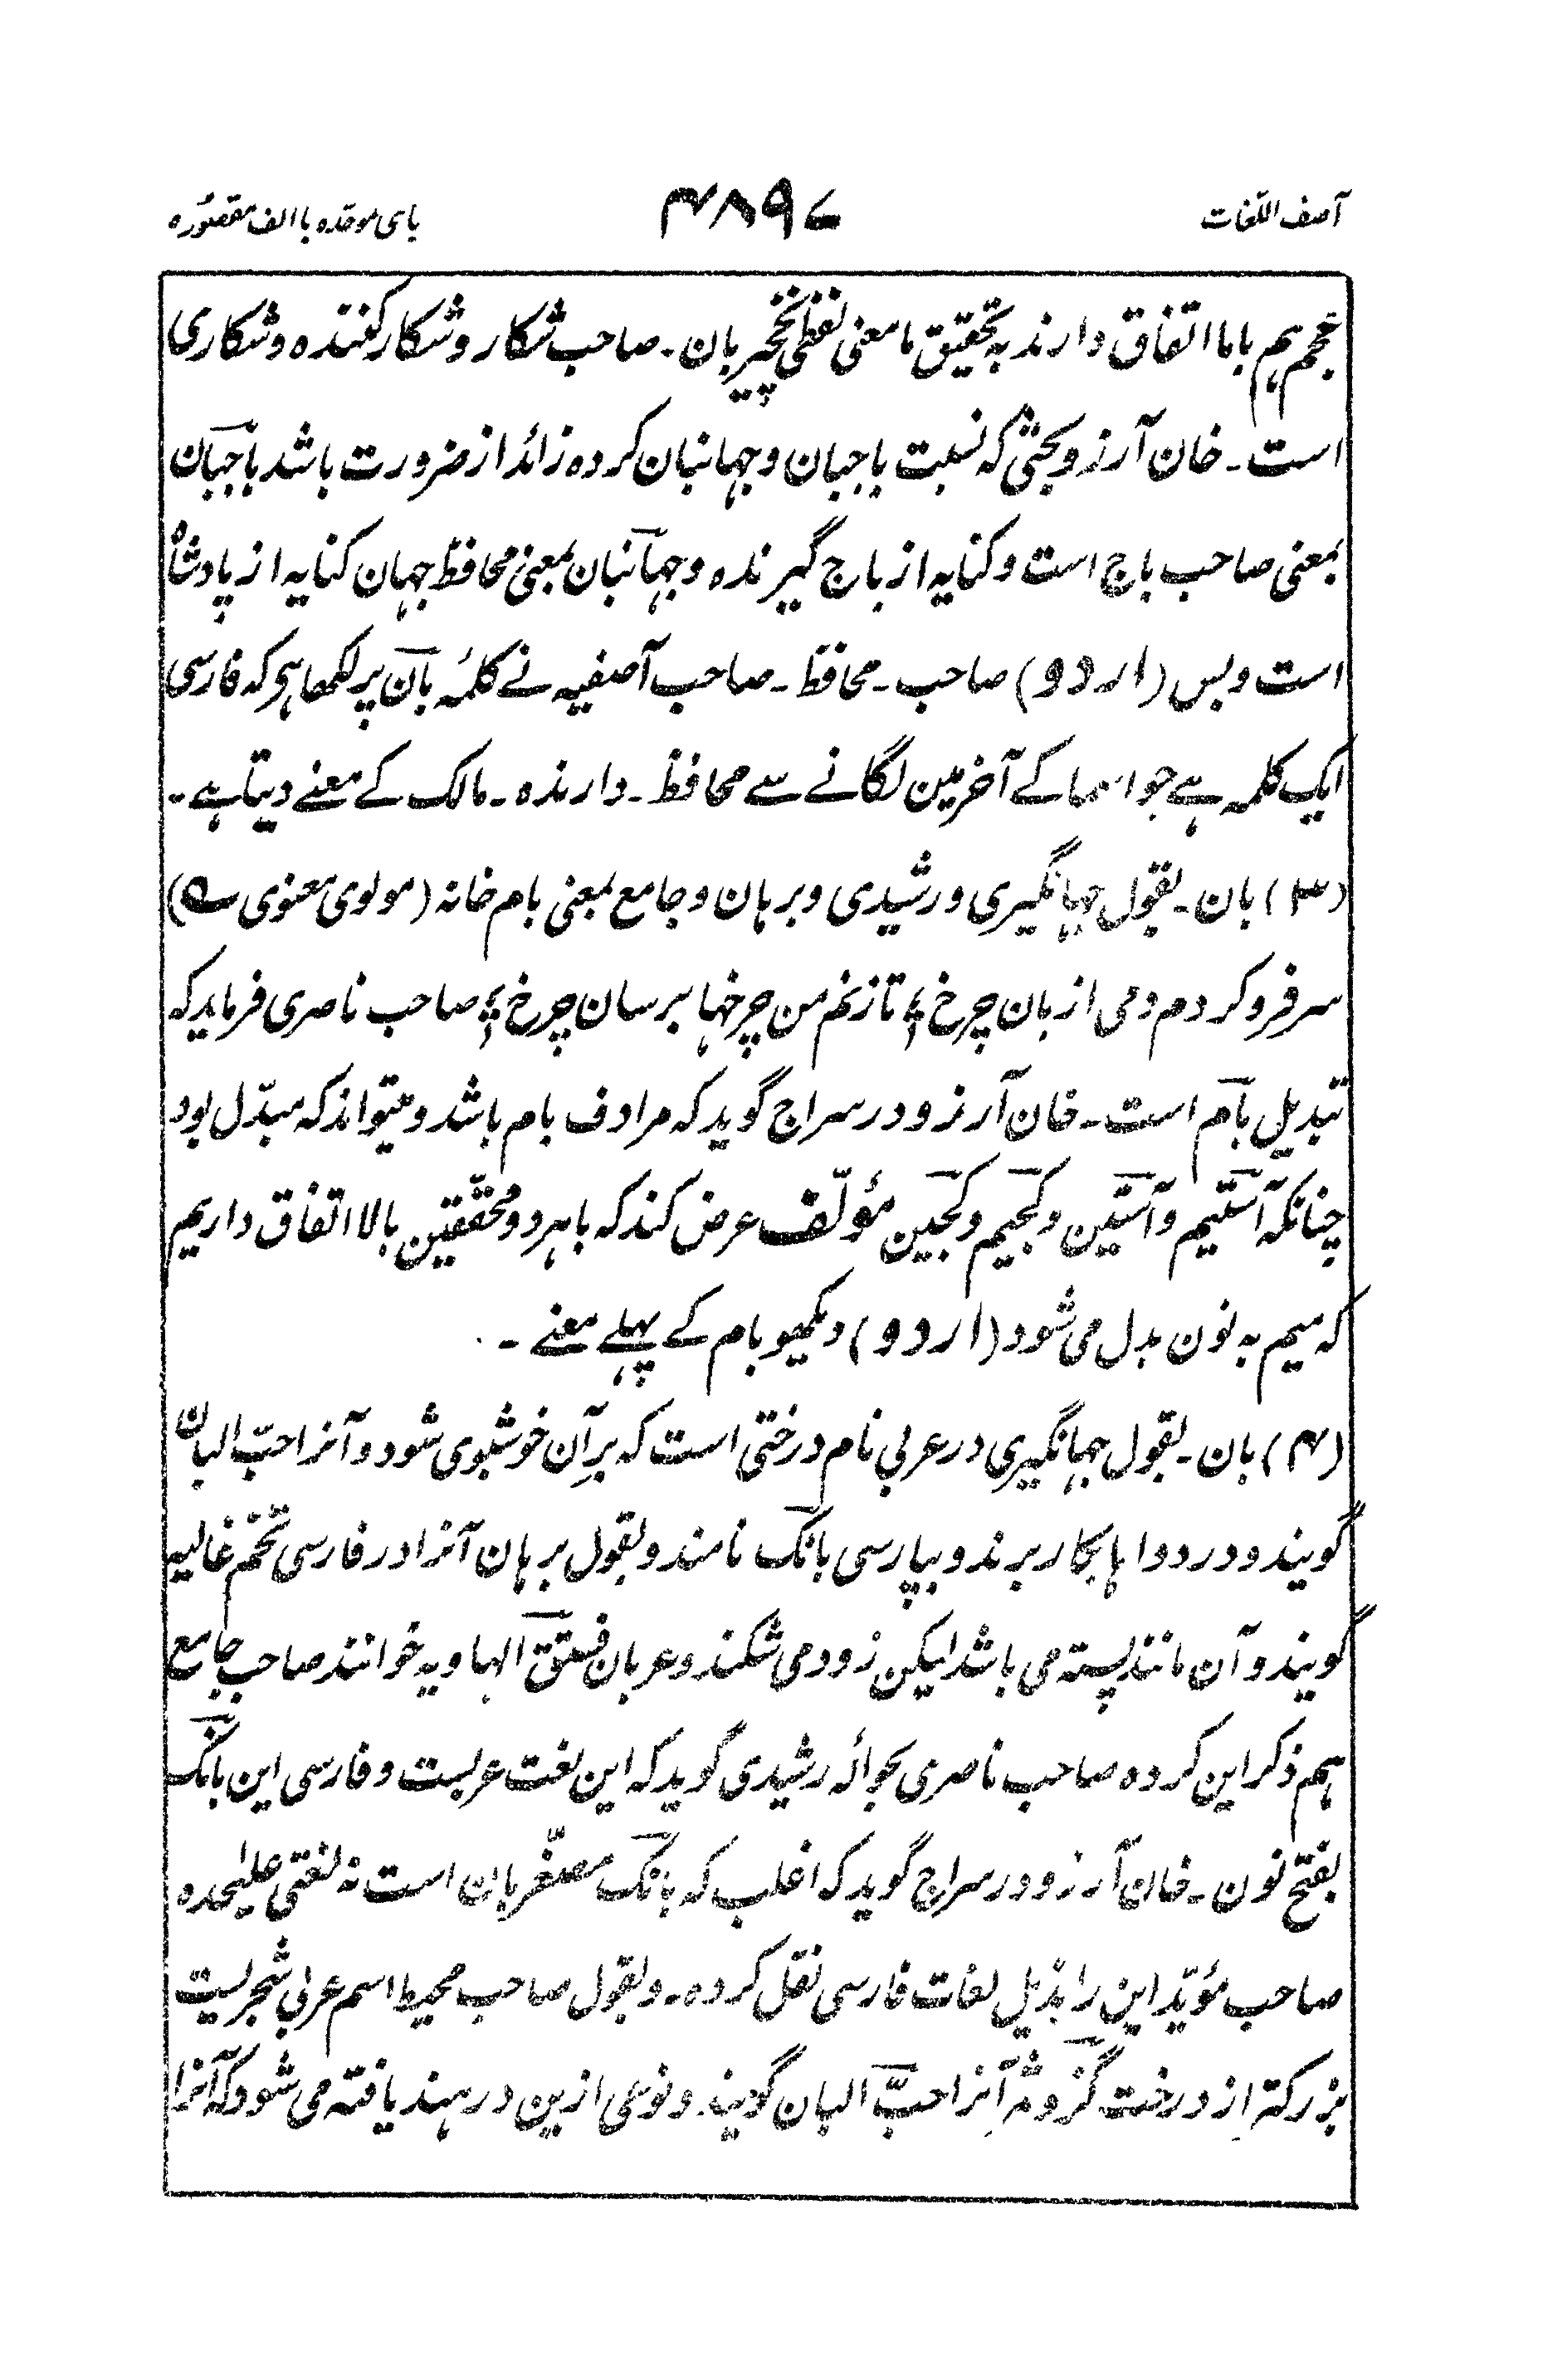 آصف اللّغات ۴۸۹۷ بای موحّدہ با الف مقصورہ
عجم ہم باما اتفاق دارند بہ تحقیق ما معنی لفظی نخچیر بان ۔ صاحب شکار و شکار کنندہ و شکاری
است ۔ خان آرزو بحثی کہ نسبت باجبان و جہانبان کردہ زائد از ضرورت باشد باجبان
بمعنی صاحب باج است و کنایہ از باج گیرندہ و جہانبان بمعنی محافظ جہان کنایہ از پادشاہ
است و بس (اردو) صاحب ۔ محافظ ۔ صاحب آصفیہ نے کلمۂ بان پر لکھا ہی کہ فارسی
ایک کلمہ ہے جو اسما کے آخر مین لگانے سے محافظ ۔ دارندہ ۔ مالک کے معنے دیتا ہے ۔
(۳) بان ۔ بقول جہانگیری و رشیدی و برہان و جامع بمعنی بام خانہ (مولوی معنوی ؎)
سر فرو کردم دمی از بان چرخ ؛ تازنم من چرخہا برسان چرخ ؛ صاحب ناصری فرماید کہ
تبدیل بام است ۔ خان آرزو در سراج گوید کہ مرادف بام باشد و میتواند کہ مبدّل بود
چنانکہ آستیم و آستین و کجیم و کجین مؤلّف عرض کند کہ باہر دو محقّقین بالا اتفاق داریم
کہ میم بہ نون بدل می شود (اردو) دیکھو بام کے پہلے معنے ۔
(۴) بان ۔ بقول جہانگیری در عربی نام درختی است کہ برِ آن خوشبوی شود و آنرا حبّ البان
گویند و در دواہا بکار برند و بپارسی بانک نامند و بقول برہان آنرا در فارسی تخم غالیہ
گویند و آن مانند پستہ می باشد لیکن زود می شکند و عربان فستق الہاویہ خوانند صاحب جامع
ہم ذکر این کردہ صاحب ناصری بحوالۂ رشیدی گوید کہ این لغت عربیست و فارسی این بانک
بفتح نون ۔ خان آرزو در سراج گوید کہ اغلب کہ بانک مصغّر بان است نہ لغتی علیٰحدہ
صاحب مؤیّد این را بذیل لغات فارسی نقل کردہ ۔ و بقول صاحب محیط اسم عربی شجریست
بزرکتر از درخت گز و ثمر آنرا حبّ البان گویند و نوعی ازین در ہند یافتہ می شود کہ آنرا